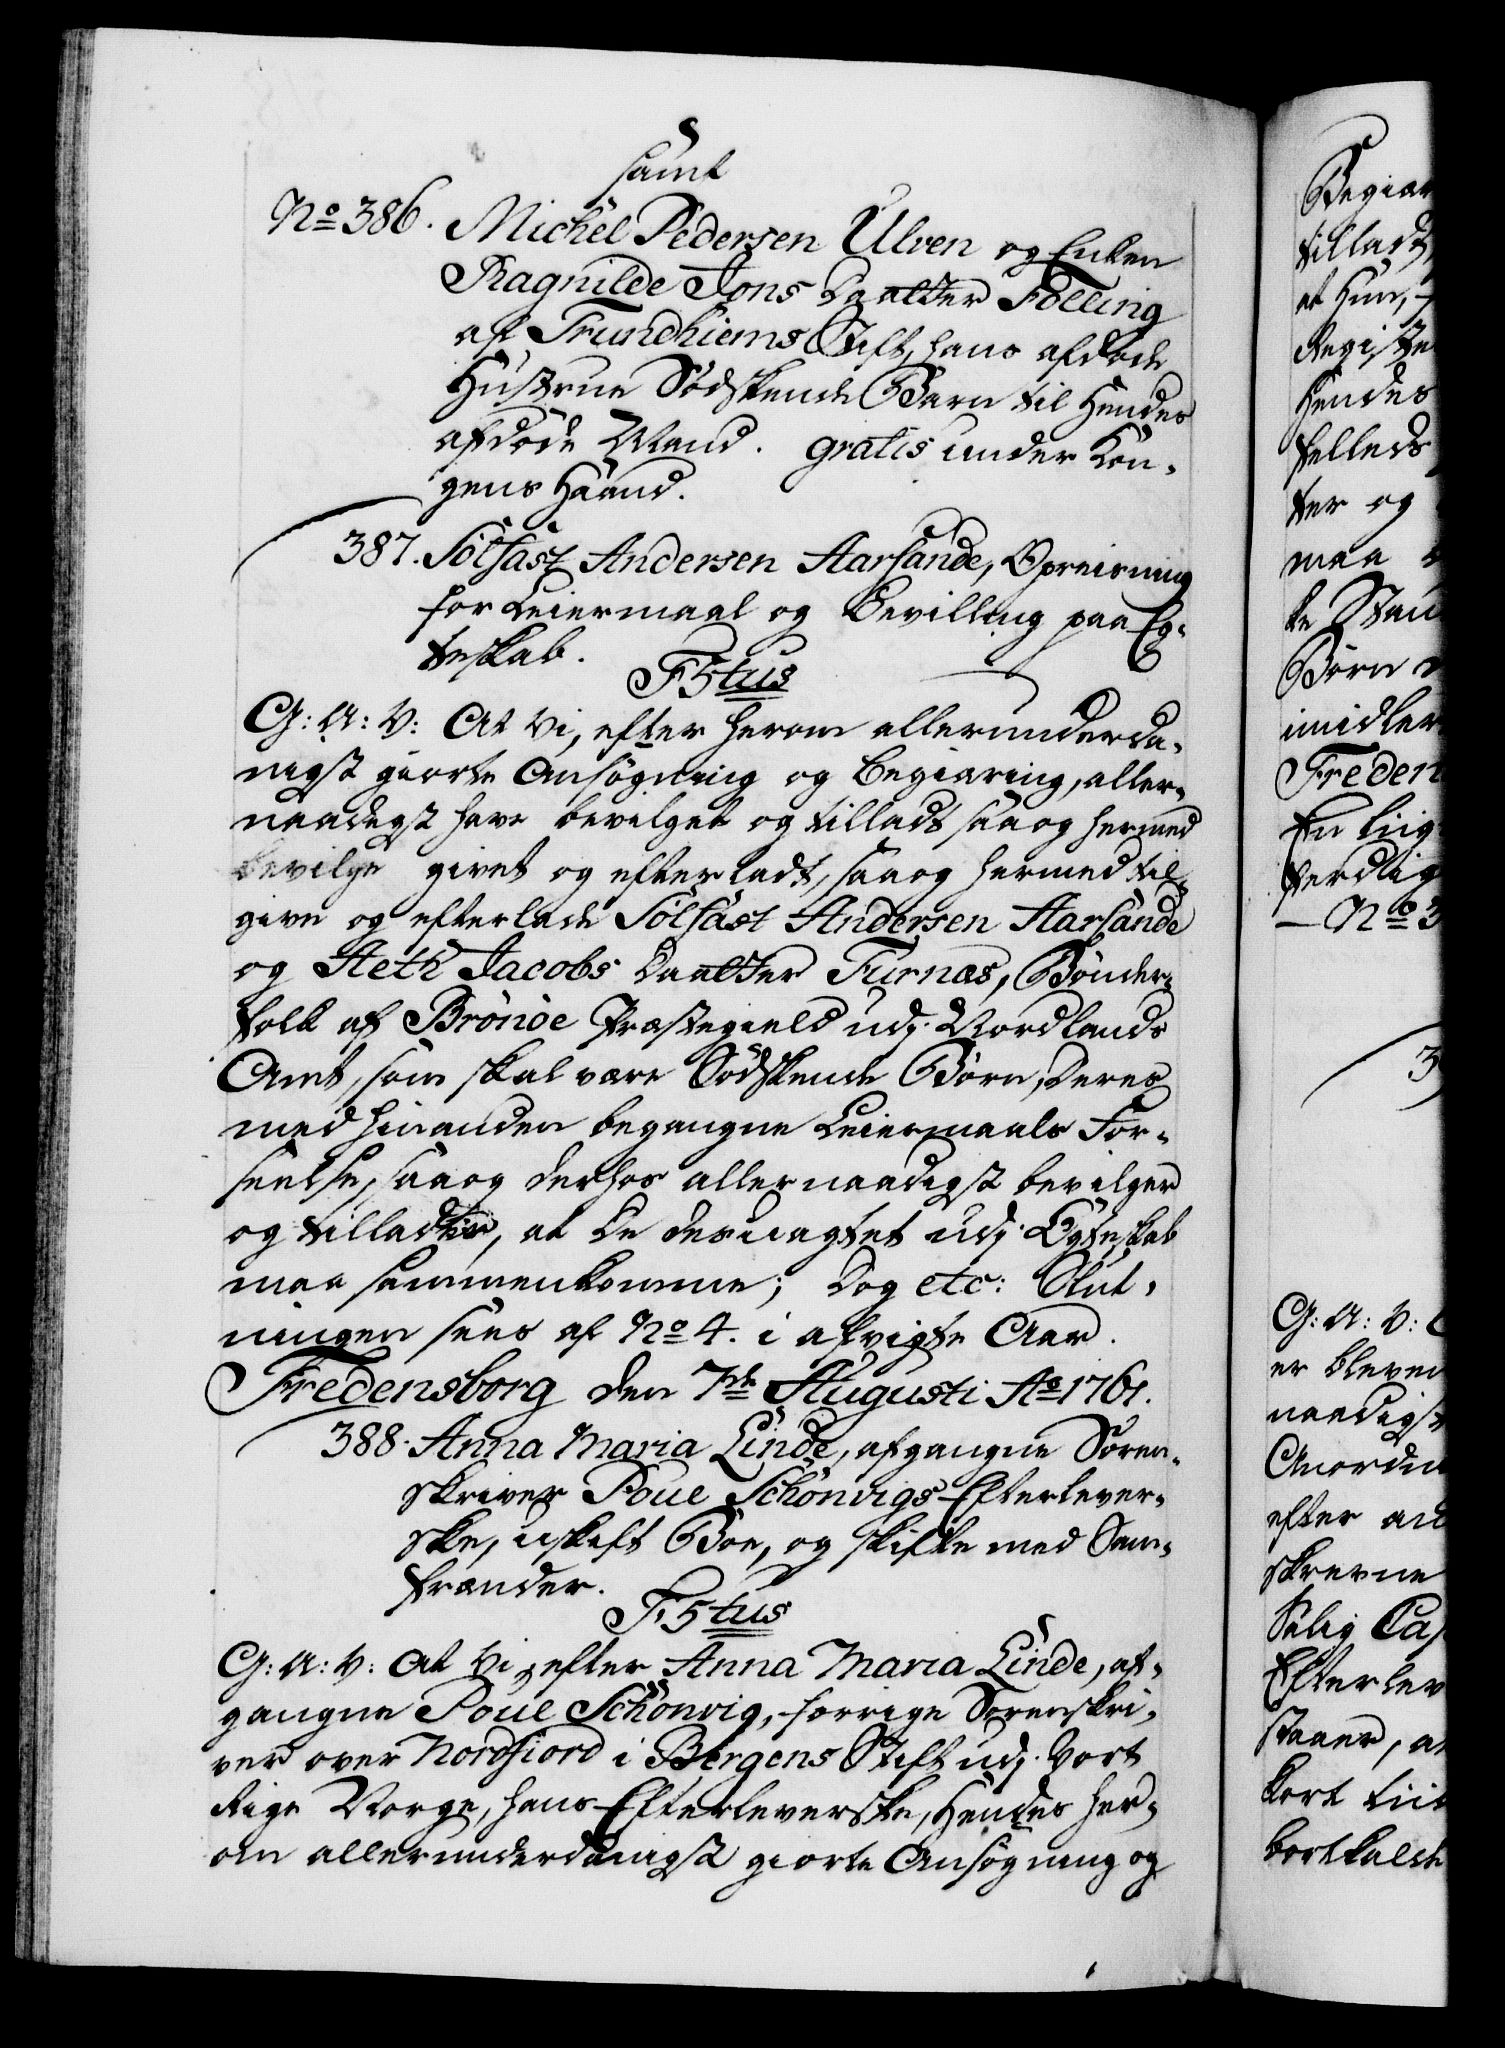 samt
No 386. Michel Pedersen Ulven og Enken
Ragnilde Jons Daatter Følling
af Trundhiems Stift, hans afdøde
Hustrue Södskende Barn til Hendes
afdøde Mand. gratis under Kon-
gens Haand.
387. Solfast Andersen Aarsande, Opreisning
for Leiermaal og Bevilling paa Eg-
teskab.
F5tus
G: A: V: At Vi, efter herom allerunderda-
nigst giorte Ansögning og Begiæring, aller-
naadigst have bevilget og tilladt saa og hermed
bevilge givet og efterladt, saa og hermed til-
give og efterlade Solfast Andersen Aarsande
og Aeth Jacobs Daatter Turnæs, Bönder-
folk af Brönöe Præstegield udj Nordlands
Amt, som skal være Södskende Börn, Deres
med hinanden begangne Leiermaals For-
seelse, saa og derhos allernaadigst bevilger
og tillader, at De desuagtet udj Egteskab
maa sammenkomme; Dog etc: Slut-
ningen sees af No 4. i afvigte Aar.
Fredensborg den 7de Augusti Ao 1761.
388. Anna Maria Linde, afgangne Soren-
skriver Poul Schönvigs Efterlever-
ske, uskift Boe, og skifte med Sam-
frænder.
F5tus
G: A: V: At Vi, efter Anna Maria Linde, af-
gangne Poul Schönvig, forrige Sorenskri-
ver over Nordfiord i Bergens Stift udj Vort
Rige Norge, hans Efterleverske, Hendes her-
om allerunderdanigst giorte Ansögning og
Begiær
tilladt,
at Hun,
Registe
Hendes
felleds
ter og
maa
ke Stan
Börn
imidler
Freden
En liig
færdig
No 3
3
G: A: V:
er bleven
naadigst
Anordn
efter an
skrevne
Salig Cap
Efterlev
staaer, a
kort tiid
bortkaldt